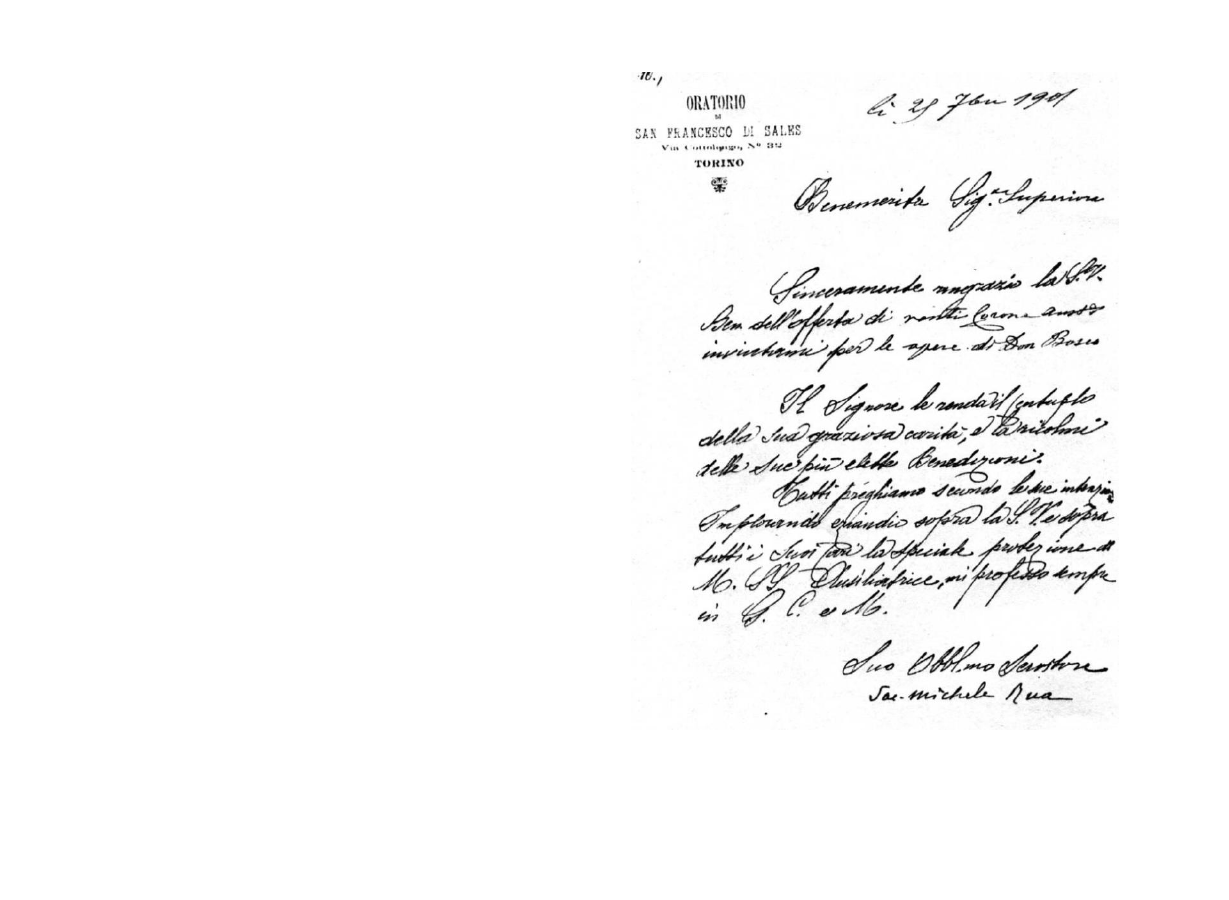 10.,
ORATORIO
DI
SAN FRANCESCO DI SALES
Via Cottolengo, Nº 32
TORINO
li 25 7bre 1901
Benemerita Sig.ra Superiora
Sinceramente ringrazio la S.V.
Ben. dell'offerta di venti Corone
inviatami per le opere di Don Bosco
Il Signore le renda il centuplo
della Sua graziosa carità, e la ricolmi
delle Sue più elette Benedizioni.
Tutti preghiamo secondo le sue intenzioni
Implorando eziandio sopra la S.V. e sopra
tutti i Suoi cari la speciale protezione di
M. SS Ausiliatrice, mi professo sempre
in G. C. e M.
Suo Obbl.mo Servitore
Sac. Michele Rua